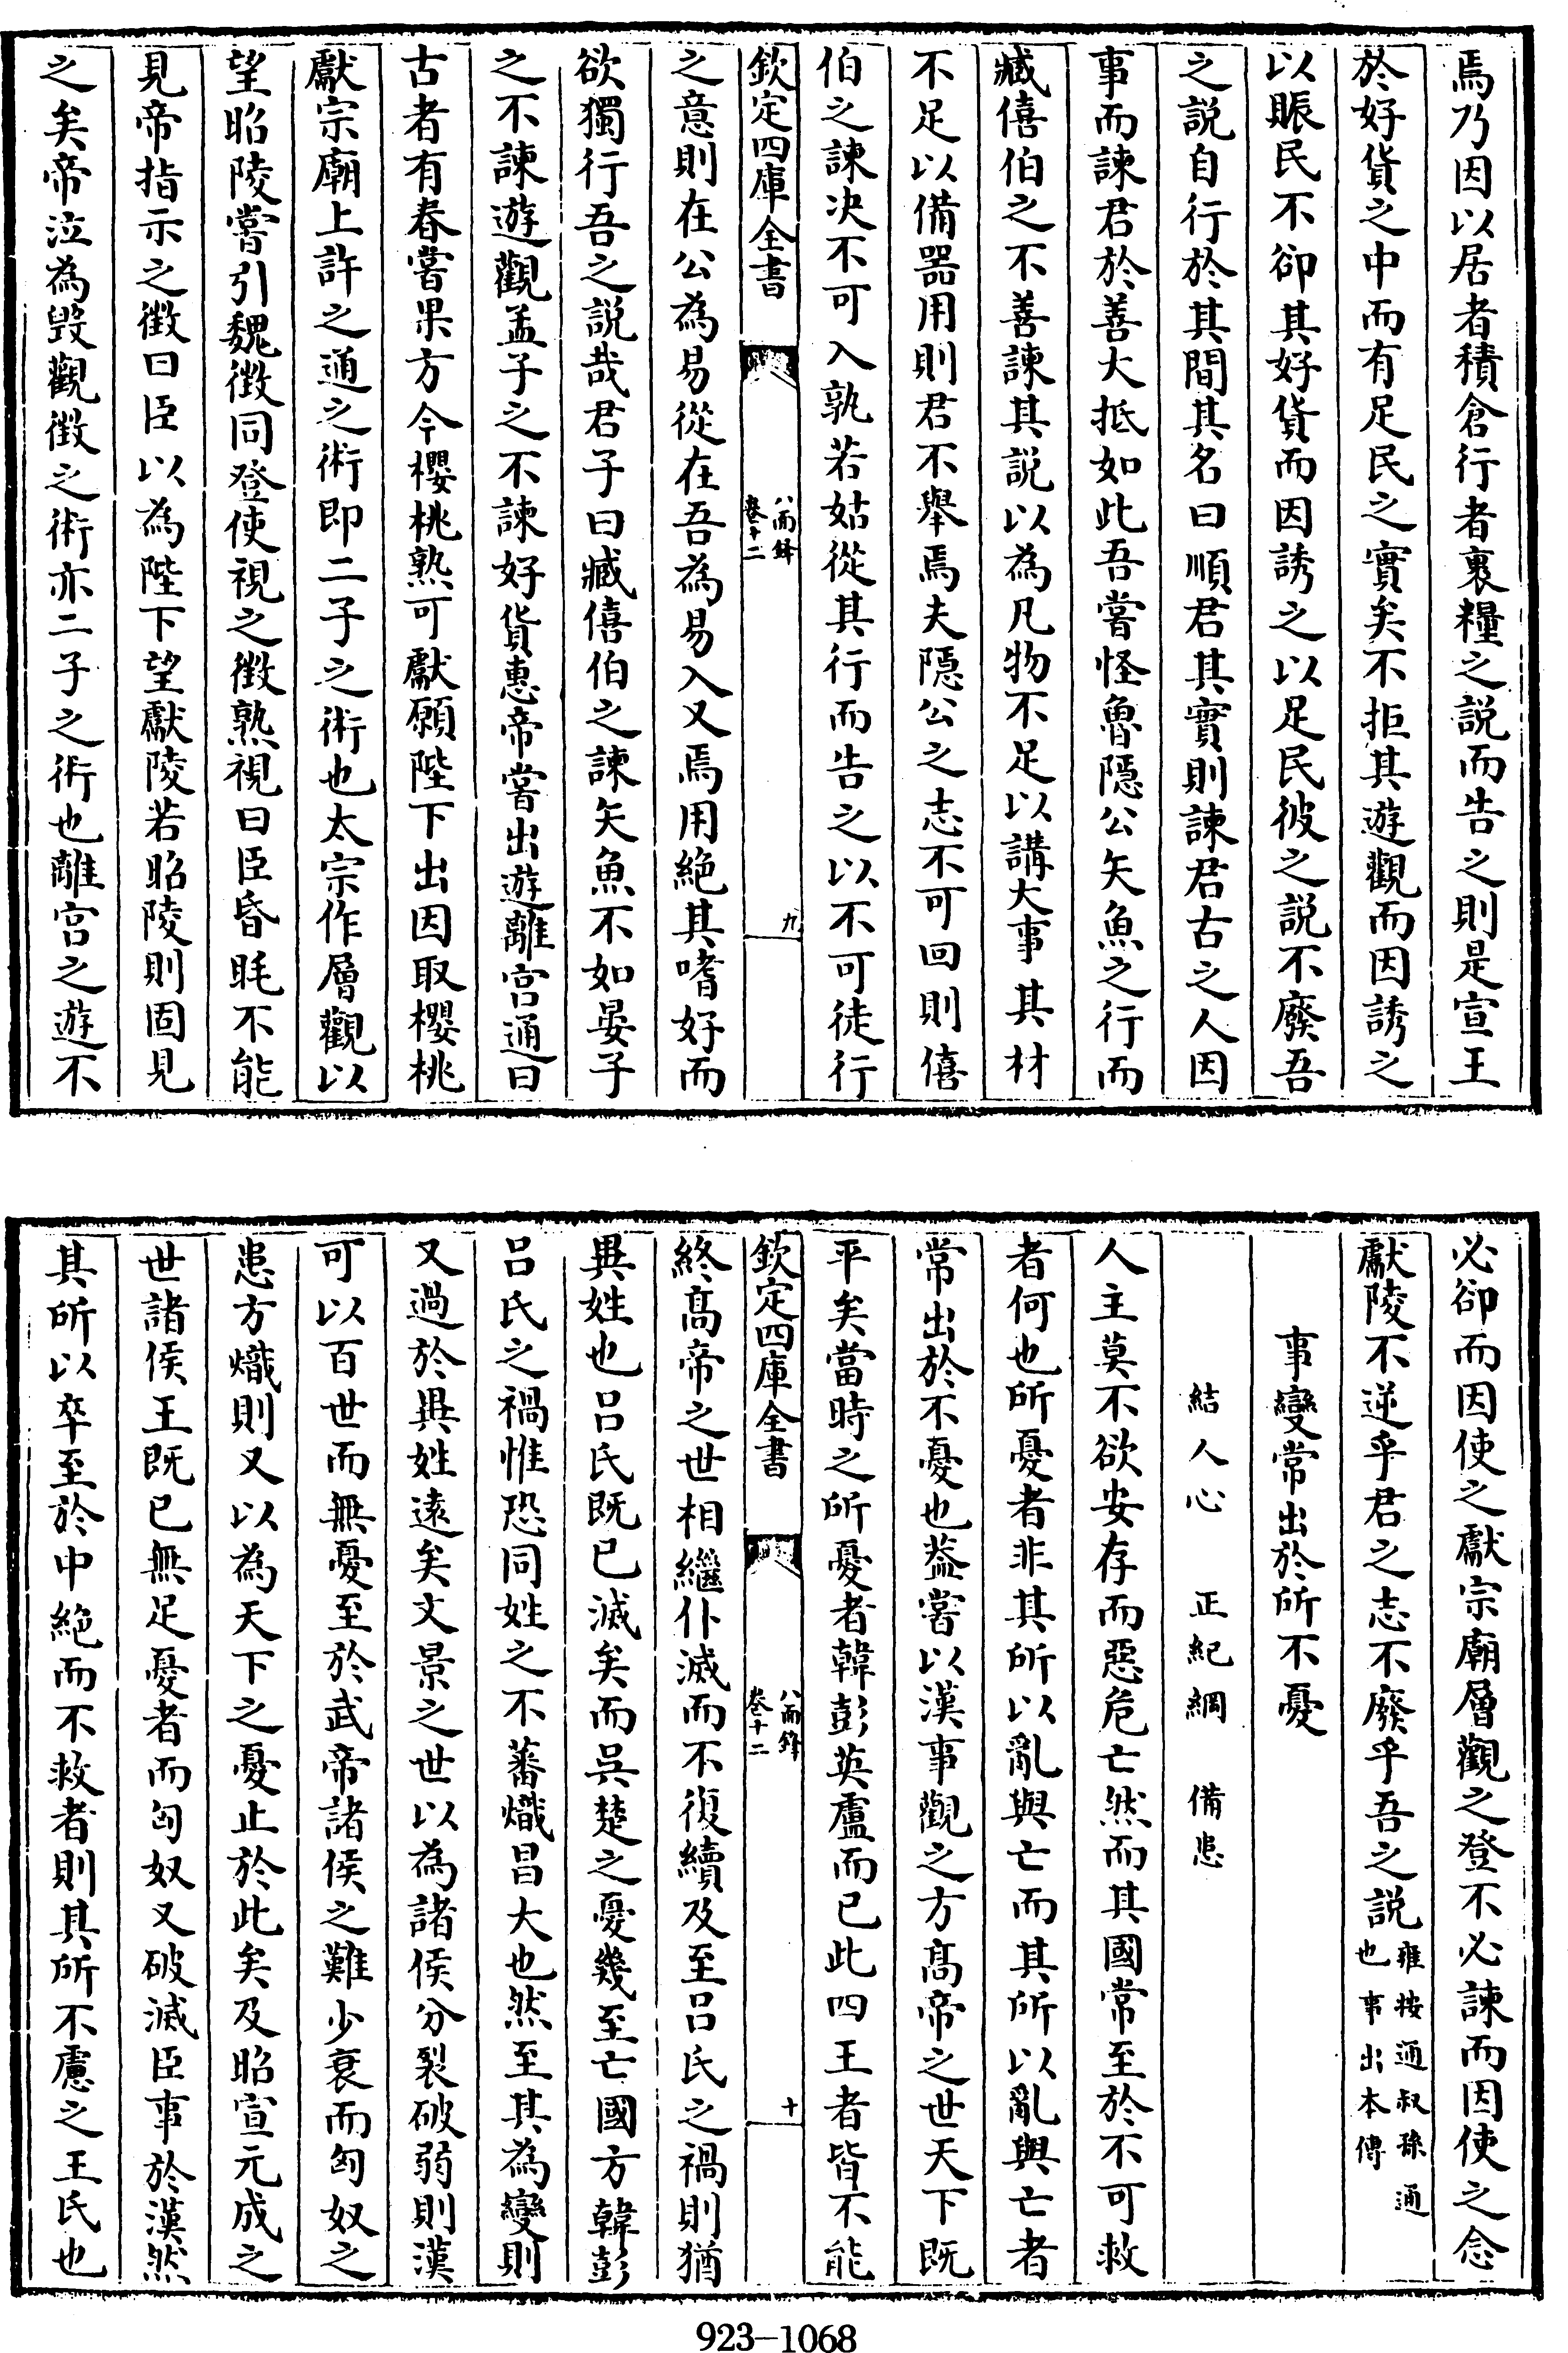 焉乃因以居者積倉行者裹糧之説而告之則是宣王
於好貨之中而有足民之實矣不拒其遊觀而因誘之
以賑民不卻其好貨而因誘之以足民彼之説不廢吾
之説自行於其間其名曰順君其實則諫君古之人因
事而諫君於善大抵如此吾嘗怪魯隱公矢魚之行而
臧僖伯之不善諫其説以為凡物不足以講大事其材
不足以備器用則君不舉焉夫隱公之志不可回則僖
伯之諫決不可入孰若姑從其行而告之以不可徒行
欽定四庫全書
八面鋒
卷十二
九
之意則在公為易從在吾為易入又焉用絶其嗜好而
欲獨行吾之説哉君子曰臧僖伯之諫矢魚不如晏子
之不諫遊觀孟子之不諫好貨惠帝嘗出遊離宫通曰
古者有春嘗果方今櫻桃熟可獻願陛下出因取櫻桃
獻宗廟上許之通之術即二子之術也太宗作層觀以
望昭陵嘗引魏徴同登使視之徴熟視曰臣昏眊不能
見帝指示之徴曰臣以為陛下望獻陵若昭陵則固見
之矣帝泣為毁觀徴之術亦二子之術也離宫之遊不
必卻而因使之獻宗廟層觀之登不必諫而因使之念
獻陵不逆乎君之志不廢乎吾之説雍按通叔孫通
也事出本傳
事變常出於所不憂
結人心 正紀綱 備患
人主莫不欲安存而惡危亡然而其國常至於不可救
者何也所憂者非其所以亂與亡而其所以亂與亡者
常出於不憂也葢嘗以漢事觀之方髙帝之世天下既
平矣當時之所憂者韓彭英盧而已此四王者皆不能
欽定四庫全書
八面鋒
卷十二
十
終髙帝之世相繼仆滅而不復續及至吕氏之禍則猶
異姓也吕氏既已滅矣而吳楚之憂幾至亡國方韓彭
吕氏之禍惟恐同姓之不蕃熾昌大也然至其為變則
又過於異姓逺矣文景之世以為諸侯分裂破弱則漢
可以百世而無憂至於武帝諸侯之難少衰而匈奴之
患方熾則又以為天下之憂止於此矣及昭宣元成之
世諸侯王既已無足憂者而匈奴又破滅臣事於漢然
其所以卒至於中絶而不救者則其所不慮之王氏也
923-1068